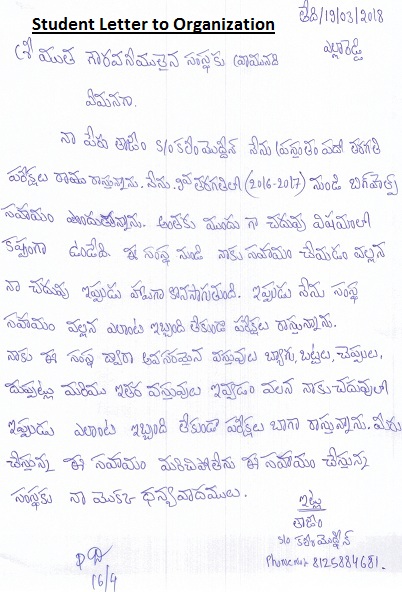 Student Letter to Organization
తేది/19/03/2018
ఎల్లారెడ్డి
శ్రీ యుత గౌరవనీయుతైన సంస్థకు వ్రాయునది
ఏమనగా.
నా పేరు తాజోం S/o కలీం మొద్దీన్ నేను ప్రస్తుతం పదో తరగతి
పరీక్షలు రాయు రాస్తున్నాను. నేను 9వ తరగతిలో (2016-2017) నుండి బిగ్‌హెల్ప్
సహాయం పొందుతున్నాను. అంతకు ముందు గా చదువు విషయంలో
కష్టంగా ఉండేది. ఈ సంస్థ నుండి నాకు సహాయం చేయడం వల్లన
నా చదువు ఇప్పుడు హాయిగా కొనసాగుతుంది. ఇప్పుడు నేను సంస్థ
సహాయం వల్లన ఎలాంటి ఇబ్బంది లేకుండా పరీక్షలు రాస్తున్నాను.
నాకు ఈ సంస్థ ద్వారా అవసరమైన వస్తువులు బ్యాగు, బట్టలు, చెప్పులు,
దుప్పట్లు మరియు ఇతర వస్తువులు ఇవ్వడం వలన నాకు చదువులో
ఇప్పుడు ఎలాంటి ఇబ్బంది లేకుండా పరీక్షలు బాగా రాస్తున్నాను. మీరు
చేస్తున్న ఈ సహాయం మరిచిపోలేను ఈ సహాయం చేస్తున్న
సంస్థకు నా యొక్క ధన్యవాదములు.
ఇట్లు
తాజోం
S/o కలీం మొద్దీన్
Phone no: 8125884681.
16/4